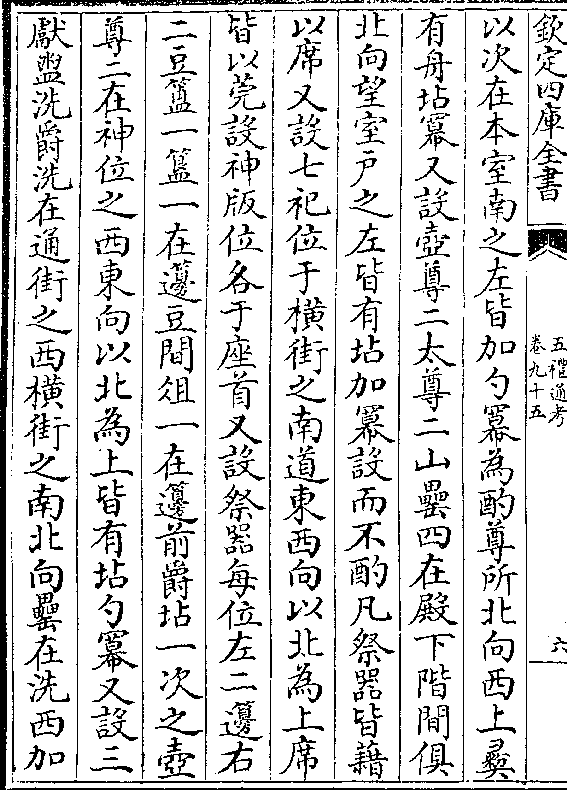 欽定四庫全書
五禮通考
卷九十五
六
以次在本室南之左皆加勺冪為酌尊所北向西上彞
有舟坫冪又設壺尊二太尊二山罍四在殿下階間俱
北向望室戶之左皆有坫加冪設而不酌凡祭器皆藉
以席又設七祀位于橫街之南道東西向以北為上席
皆以莞設神版位各于座首又設祭器每位左二籩右
二豆簠一簋一在籩豆間俎一在籩前爵坫一次之壺
尊二在神位之西東向以北為上皆有坫勺冪又設三
獻盥洗爵洗在通街之西橫街之南北向罍在洗西加